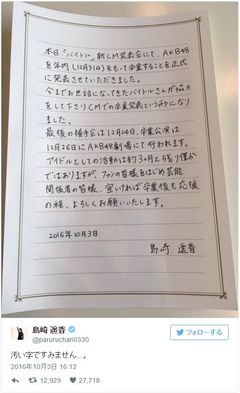 本日「バイトル」新CM発表会にて、AKB48
を年内(12月31日)をもって卒業することを正式
に発表させていただきました。
今までお世話になってきたバイトルさんが協力
をして下さりCMでの卒業発表という形になり
ました。
最後の握手会は12月24日、卒業公演は
12月26日にAKB48劇場にて行われます。
アイドルとしての活動は約3ヶ月と残り僅か
ではありますが、ファンの皆様をはじめ芸能
関係者の皆様、宜しければ卒業後も応援
の程、よろしくお願いいたします。
2016年10月3日
島崎 遥香
島崎遥香
@paruruchan0330
フォローする
汚い字ですみません…。
2016年10月3日 16:12
12,929 27,718